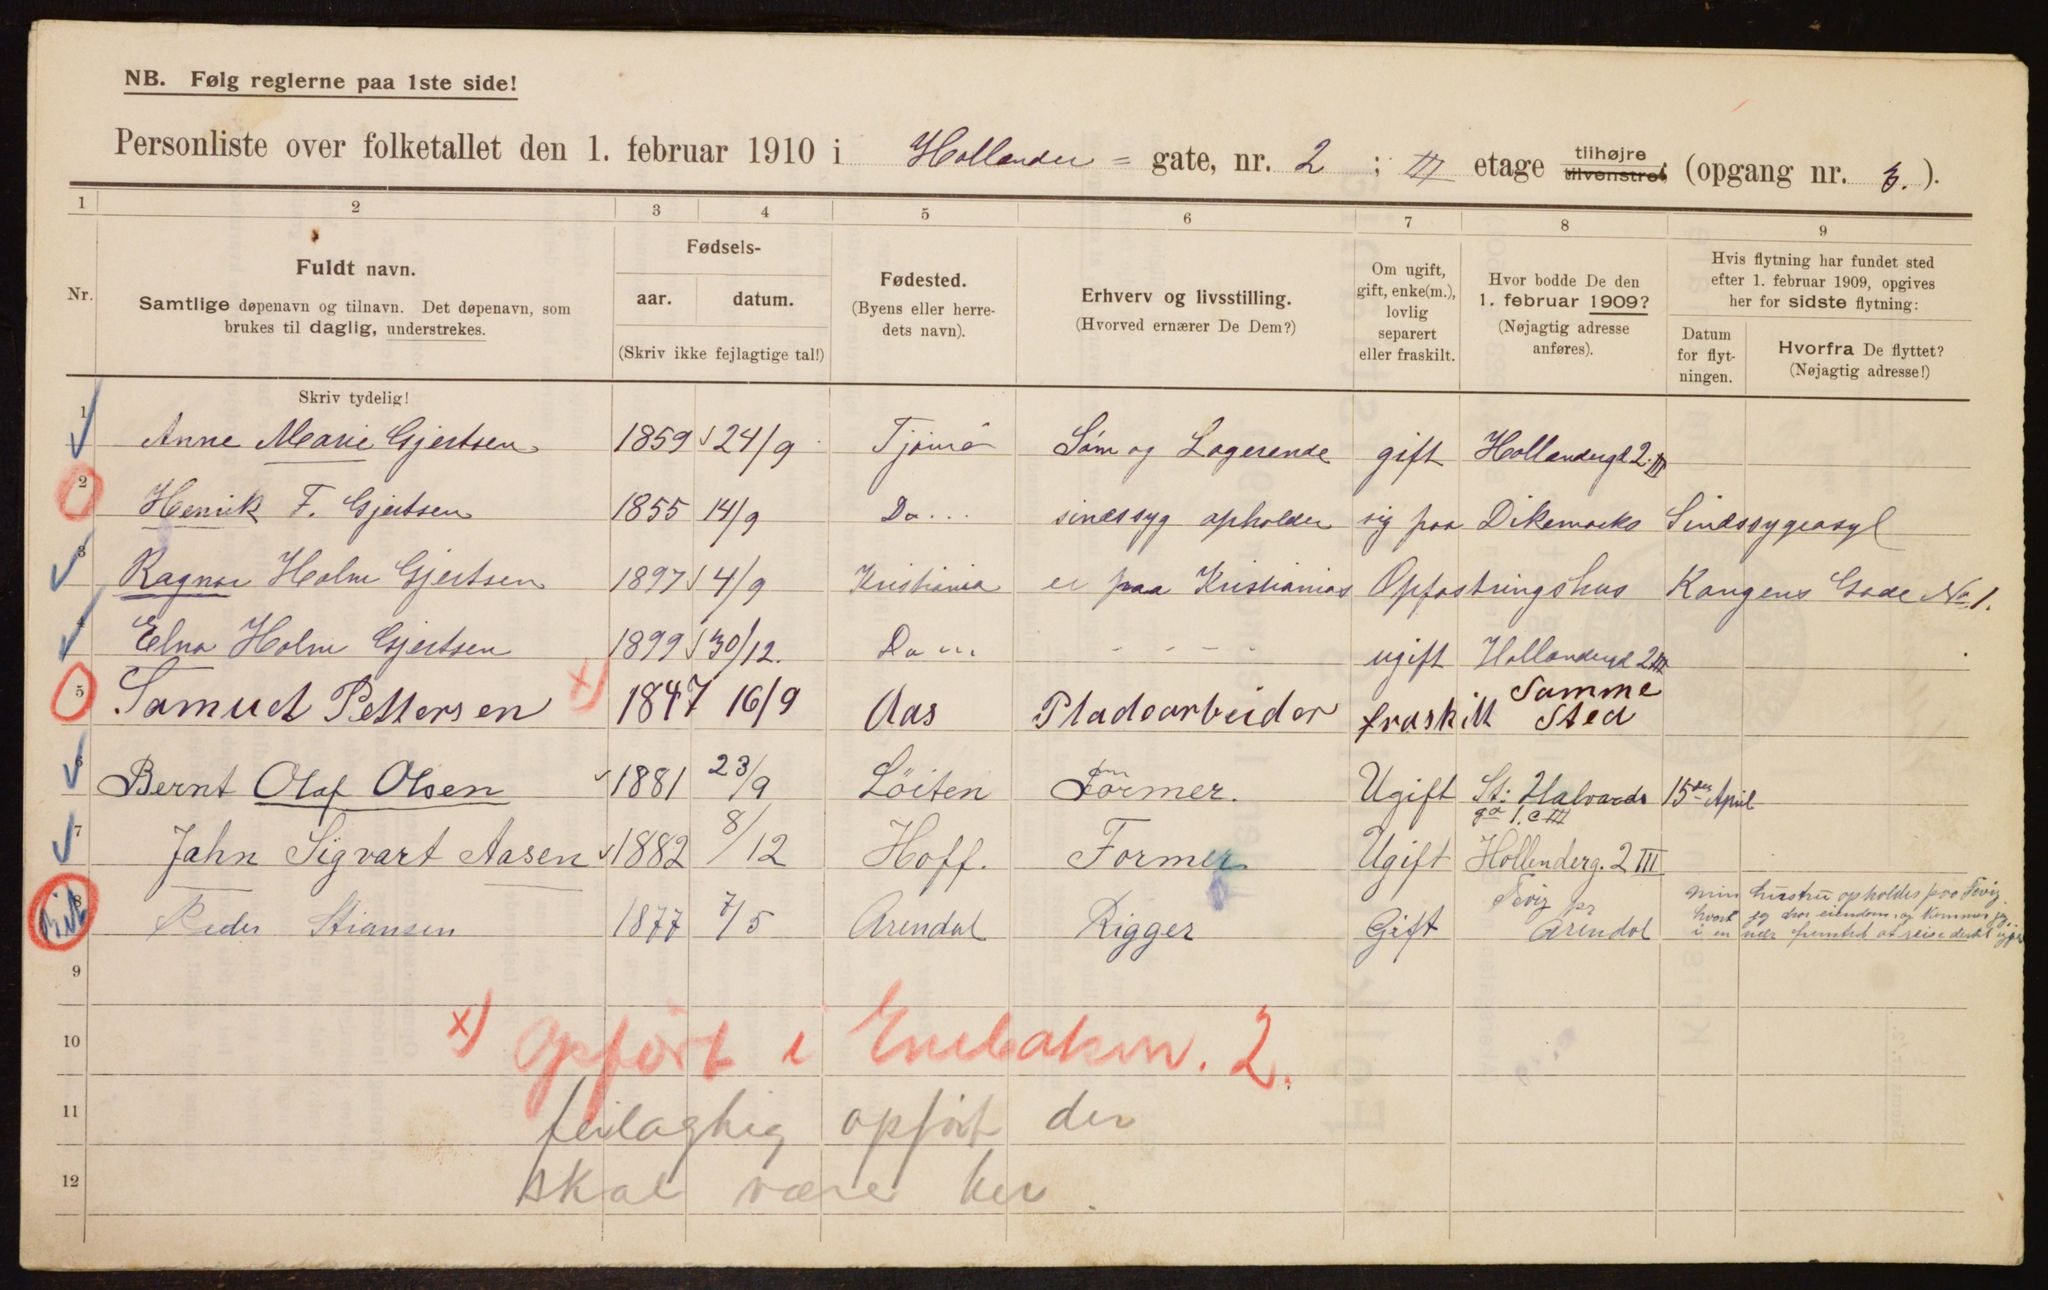 NB. Følg reglerne paa 1ste side!
Personliste over folketallet den 1. februar 1910 i Hollender = gate, nr. 2 ; III etage tilhøjre tilvenstre (opgang nr. ).
1 2 3 4 5 6 7 8 9
Nr.
Fuldt navn.
Samtlige døpenavn og tilnavn. Det døpenavn, som
brukes til daglig, understrekes.
Fødsels-
aar. datum.
(Skriv ikke fejlagtige tal!)
Fødested.
(Byens eller herre-
dets navn).
Erhverv og livsstilling.
(Hvorved ernærer De Dem?)
Om ugift,
gift, enke(m.),
lovlig
separert
eller fraskilt.
Hvor bodde De den
1. februar 1909?
(Nøjagtig adresse
anføres).
Hvis flytning har fundet sted
efter 1. februar 1909, opgives
her for sidste flytning:
Datum
for flyt-
ningen.
Hvorfra De flyttet?
(Nøjagtig adresse!)
Skriv tydelig!
1 Anne Marie Gjertsen 1859 24/9 Tjømø Søm og Logerende gift Hollendergd 2 III
2 Henrik F. Gjertsen 1855 14/9 Do... sindssyg opholder sig paa Dikemarks Sindssygeasyl
3 Ragnar Holm Gjertsen 1897 4/9 Kristiania er paa Kristianias Opfostringshus Kongens Gade No 1.
4 Elna Holm Gjertsen 1899 30/12. Do ... - - - - ugift Hollendergd 2 III
5 Samuel Pettersen x) 1847 16/9 Aas Pladsarbeider fraskilt Samme Sted
6 Bernt Olaf Olsen 1881 23/9 Löiten Former. Ugift St. Halvards ga 1. c III 15 April
7 Jahn Sigvart Aasen 1882 8/12 Hoff. Former Ugift Hollenderg. 2 III
8 Peder Stiansen 1877 7/5 Arendal Rigger Gift Fevig pr Arendal min hustru opholdes paa Fevig
hvort jeg har eiendom og kommer jeg
i en nær fremtid at reise dertil
9
10 x) Opført i Enebakvn. 2.
11 feilagtig opført der
12 skal være her.